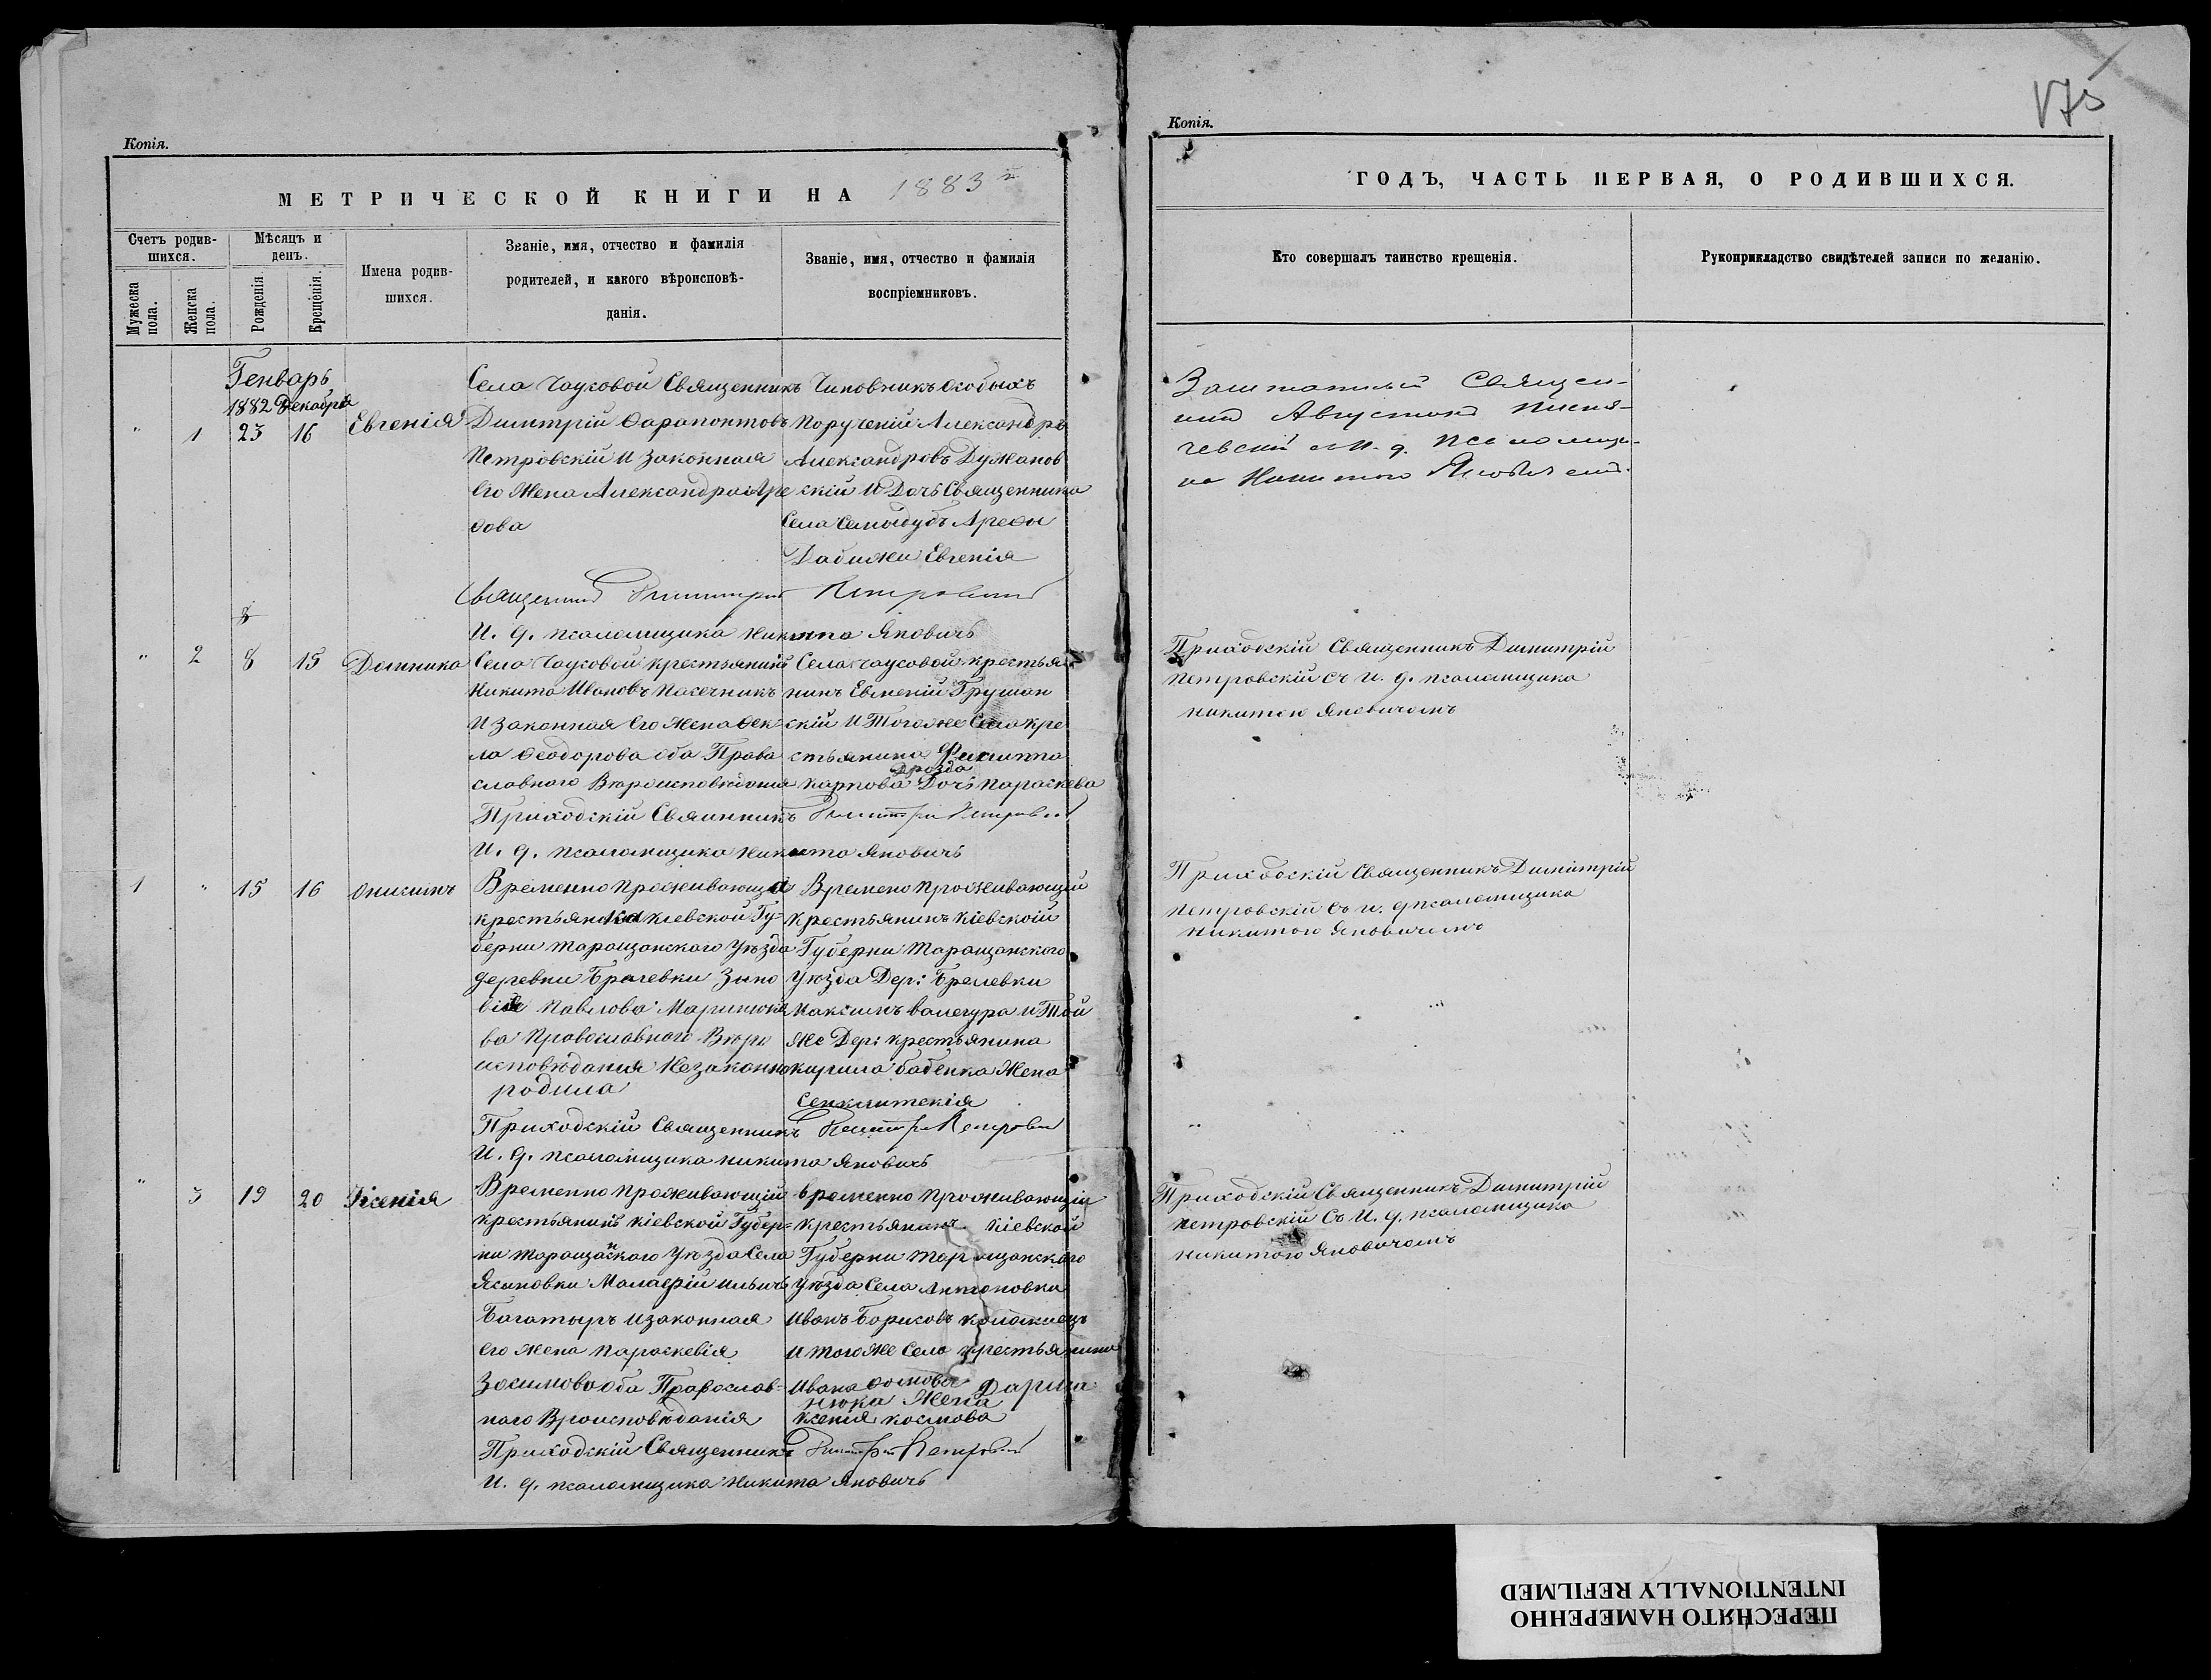 175
Копія.
МЕТРИЧЕСКОЙ КНИГИ НА 1883
Счетъ родив-
шихся.
Мужеска пола.
Женска пола.
Мѣсяцъ и
день.
Рожденія
Крещенія.
Имена родив-
шихся.
Званіе, имя, отчество и фамилія
родителей, и какого вѣроисповѣ-
данія.
Званіе, имя, отчество и фамилія
воспріемниковъ.
Генварь
1882 Декабря
" 1 23 16 Евгенія
Села Чаусовой Священникъ
Димитрій Фарапонтовъ
Петровскій и Законная
Его Жена Александра Аре
ѳова
Чиновникъ особыхъ
Порученій Александръ
Александровъ Думанов
скій и Дочь Священника
Села Арефы
Евгенія
Священникъ Димитрій Петровскій
И. д. псаломщика Никита Яновичъ
" 2 8 15 Домника
Села Чаусовой крестьянинъ
Никита Ивановъ Пасечникъ
и Законная Его Жена Ѳек
ла Ѳеодорова оба Право
славного Вѣроисповѣдания
Села Чаусовой крестья
нинъ Евмений Грушан
скій и Тогоже Села кре
стьянина Филиппа
Дрозда
Карпова Дочь Параскева
Приходскій Свяинникъ Димитрій Петровскій
И. д. псаломщика Никита Яновичъ
1 " 15 16 Онисимъ
Временно Проживающая
крестьянка Кіевской Гу=
берни Таращанского Уѣзда
деревни Зино
вія Павлова
ва Православнаго Вѣро
исповѣдания Незаконно
родила
Времено Проживающій
крестьянинъ Кіевской
Губерни Таращанского
Уѣзда Дер:
Максимъ и Той
же Дер: крестьянина
Кирила Бабенка Жена
Синклитекія
Приходскій Священникъ Димитрій Петровскій
И. д. псаломщика Никита Яновичъ
" 3 19 20 Ксенія
Временно Проживающій
крестьянинъ Кіевской Губер=
ни Таращанского Уѣзда Села
Ясиновки Малафій Ильичъ
Багатыръ и законная
его жена Параскевія
Зосимова Оба Православ=
наго Вѣроисповѣданія
временно Проживающій
крестьянинъ Кіевской
Губерни Таращанского
Уѣзда Села Антоновки
Иванъ Борисовъ
и тогоже Села крестьянина
Ивана Ѳомова
нюка Жена
Ксенія Космова
Приходскій Священникъ Димитрій Петровскій
И. д. псаломщика Никита Яновичъ
Копія.
ГОДЪ, ЧАСТЬ ПЕРВАЯ, О РОДИВШИХСЯ.
Кто совершалъ таинство крещенія.
Рукоприкладство свидѣтелей записи по желанію.
Заштатный Священ-
никъ Августинъ
съ И. д. псаломщи-
ка Никитою
Приходскій Священникъ Димитрій
Петровскій съ и. д. псаломщика
Никитою Яновичемъ
Приходскій Священникъ Димитрій
Петровскій Съ и. д псаломщика
Никитою Яновичемъ
Приходскій Священникъ Димитрій
Петровскій Съ И. д. псаломщика
Никитою Яновичемъ
ПЕРЕСНЯТО НАМЕРЕННО
INTENTIONALLY REFILMED